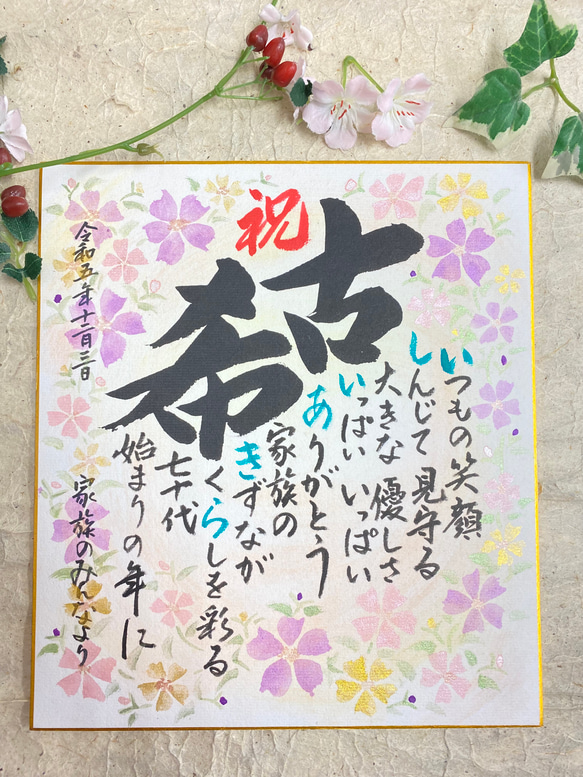 祝
古希
いつもの笑顔
しんじて 見守る
大きな 優しさ
いっぱい いっぱい
ありがとう
家族の
きずなが
くらしを彩る
七十代
始まりの年に
令和五年十二月三日
家族のみんなより